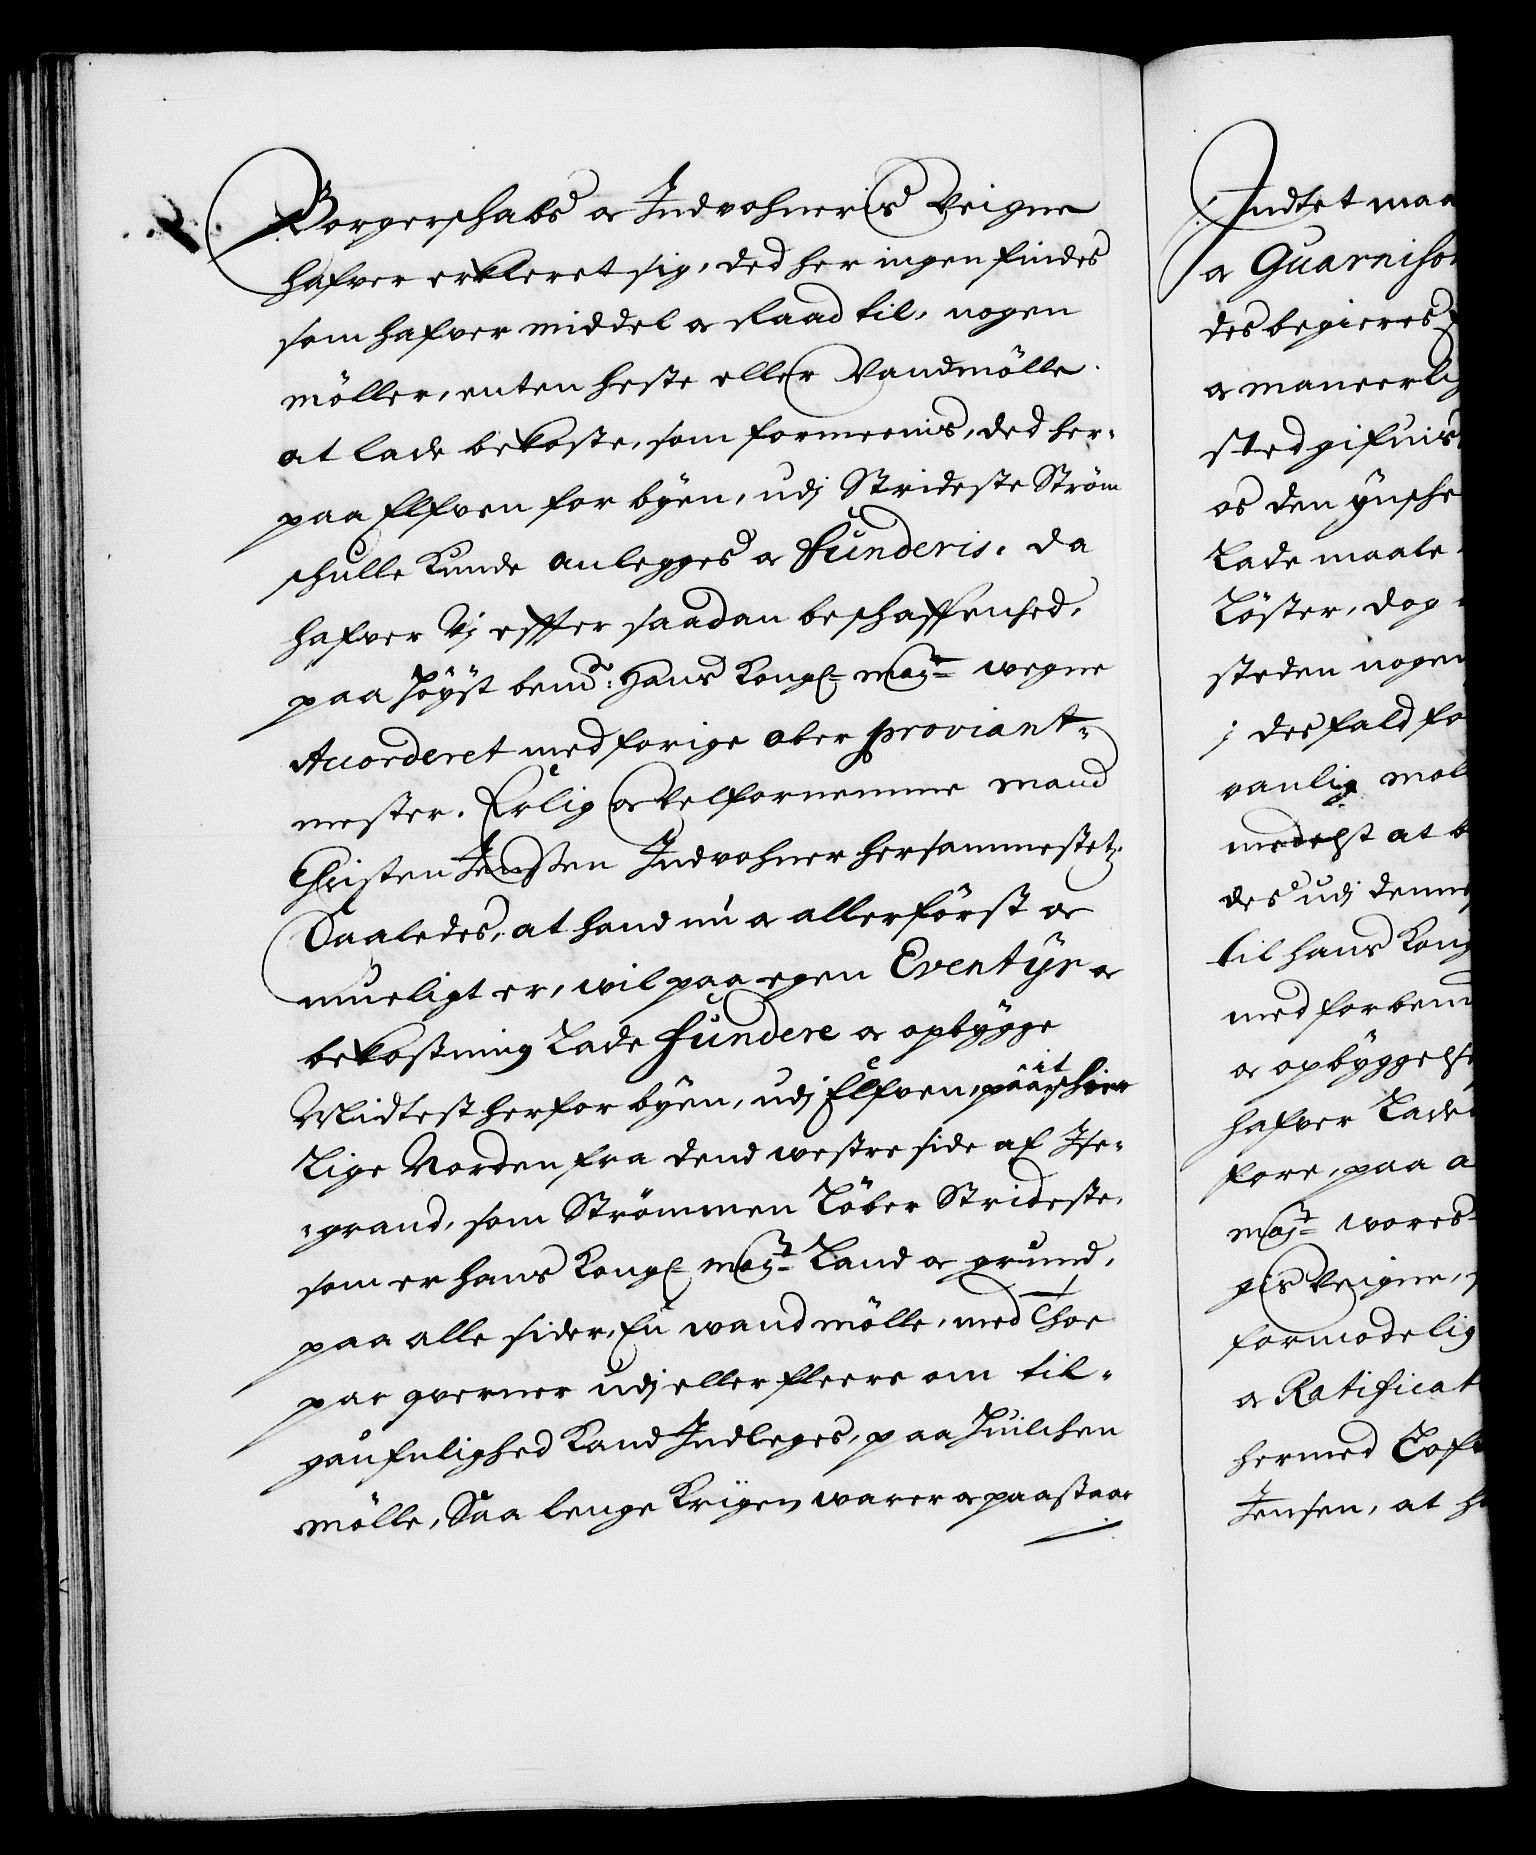 Borgerschabs oc Indvohneris Veigne
hafver erkleret sig, ded her ingen findes
som hafver middel oc Raad til, nogen
möller, enten heste eller Vandmölle
at lade bekoste, som formeenis, ded her-
paa Elfven for byen, udj Strideste Ström
schulle Kunde anlegges oc funderis, da
hafver Vj effter saadan beschaffenhed,
paa Höyst bemt: Hans Kongl: mayts: wegne
Accorderet med forige ober proviant-
mester, Erlig oc Velfornemme mand
Christen Jenssen Indvohner hersammestetz
Saaledes, at hand nu oc allerförst oc
mueligt er, wil paa egen Eventyr oc
bekostning Lade fundere oc opbygge
Midtest herfor byen, udj Elfven, paa it schier
Lige Norden fra dend westre side af Ise-
-grand, som Strömmen Löber Strideste,
som er hans Kongl: mayts: Land oc grund,
paa alle sider, En wandmölle, med Thoe
par qverner udj eller fleere om til-
gaufnlighed Kand Indleges, paa Huilchen
mölle, Saa lenge Krigen warer oc paastaar
Indtet maa
oc Guarniso
des begieres
oc maneerlig
sted gifuis
os den ynsche
Lade maale
Löster, dog
steden nogen
j des fald fo
vanlig mol
medelst at b
des udj denne
til hans Kong
med forbem
oc opbyggelse
hafver Lade
fore, paa a
mayts: wores
gis Veigne,
formodelig
oc Ratificat
hermed Lofv
Jensen, at h